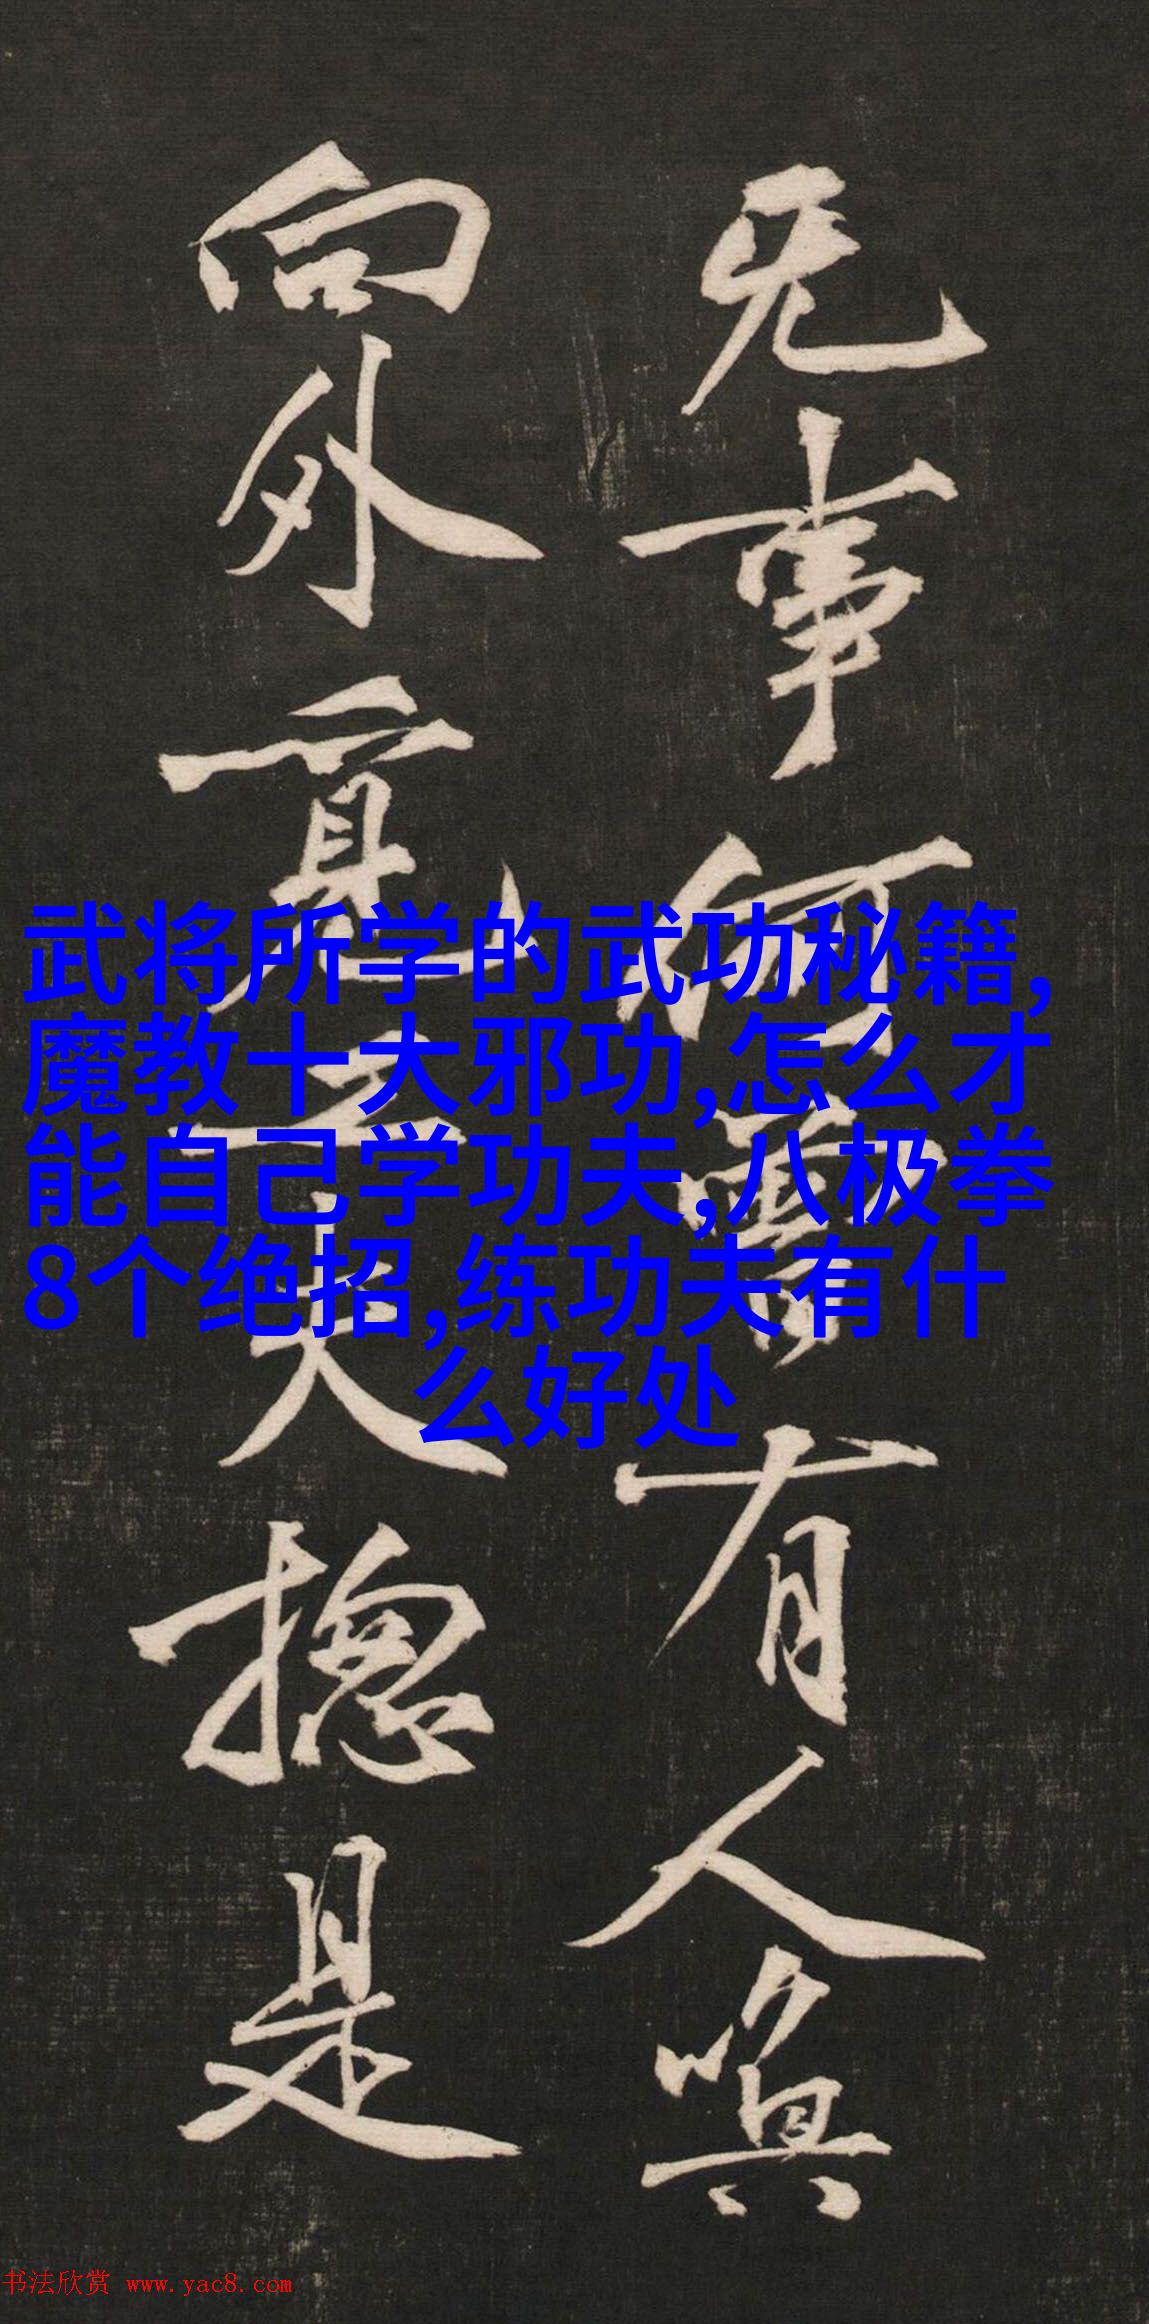 无事何
有人
向外覓工夫揔是
武将所学的武功秘籍,
魔教十大邪功,怎么才
能自己学功夫,八极拳
8个绝招,练功夫有什
么好处
书法欣赏 www.yac8.com